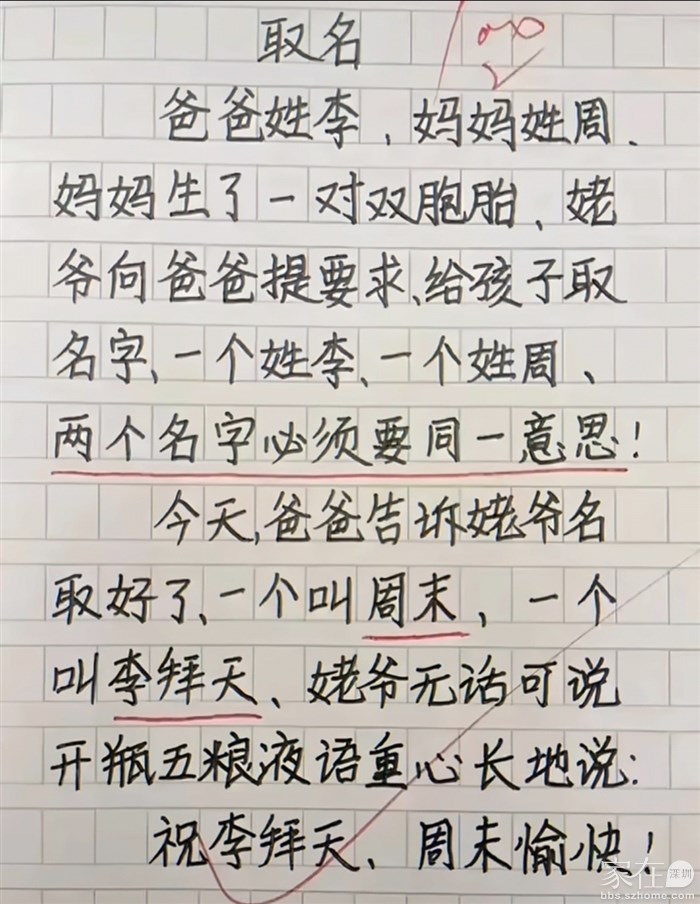 取名
爸爸姓李,妈妈姓周、
妈妈生了一对双胞胎、姥
爷向爸爸提要求、给孩子取
名字、一个姓李、一个姓周、
两个名字必须要同一意思!
今天,爸爸告诉姥爷名
取好了、一个叫周末,一个
叫李拜天、姥爷无话可说
开瓶五粮液语重心长地说:
祝李拜天、周末愉快!
家在深圳
bbs.szhome.com